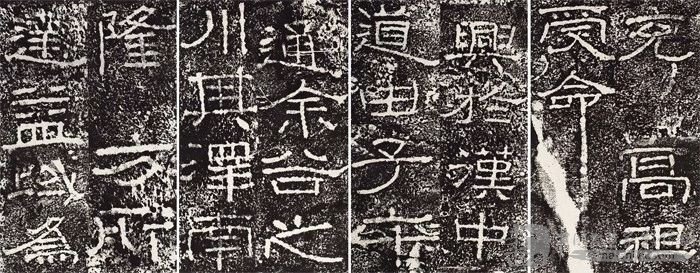 充高祖
受命
興於漢中
道由子午
通余谷之
川其澤南
隆八方所
達益域為